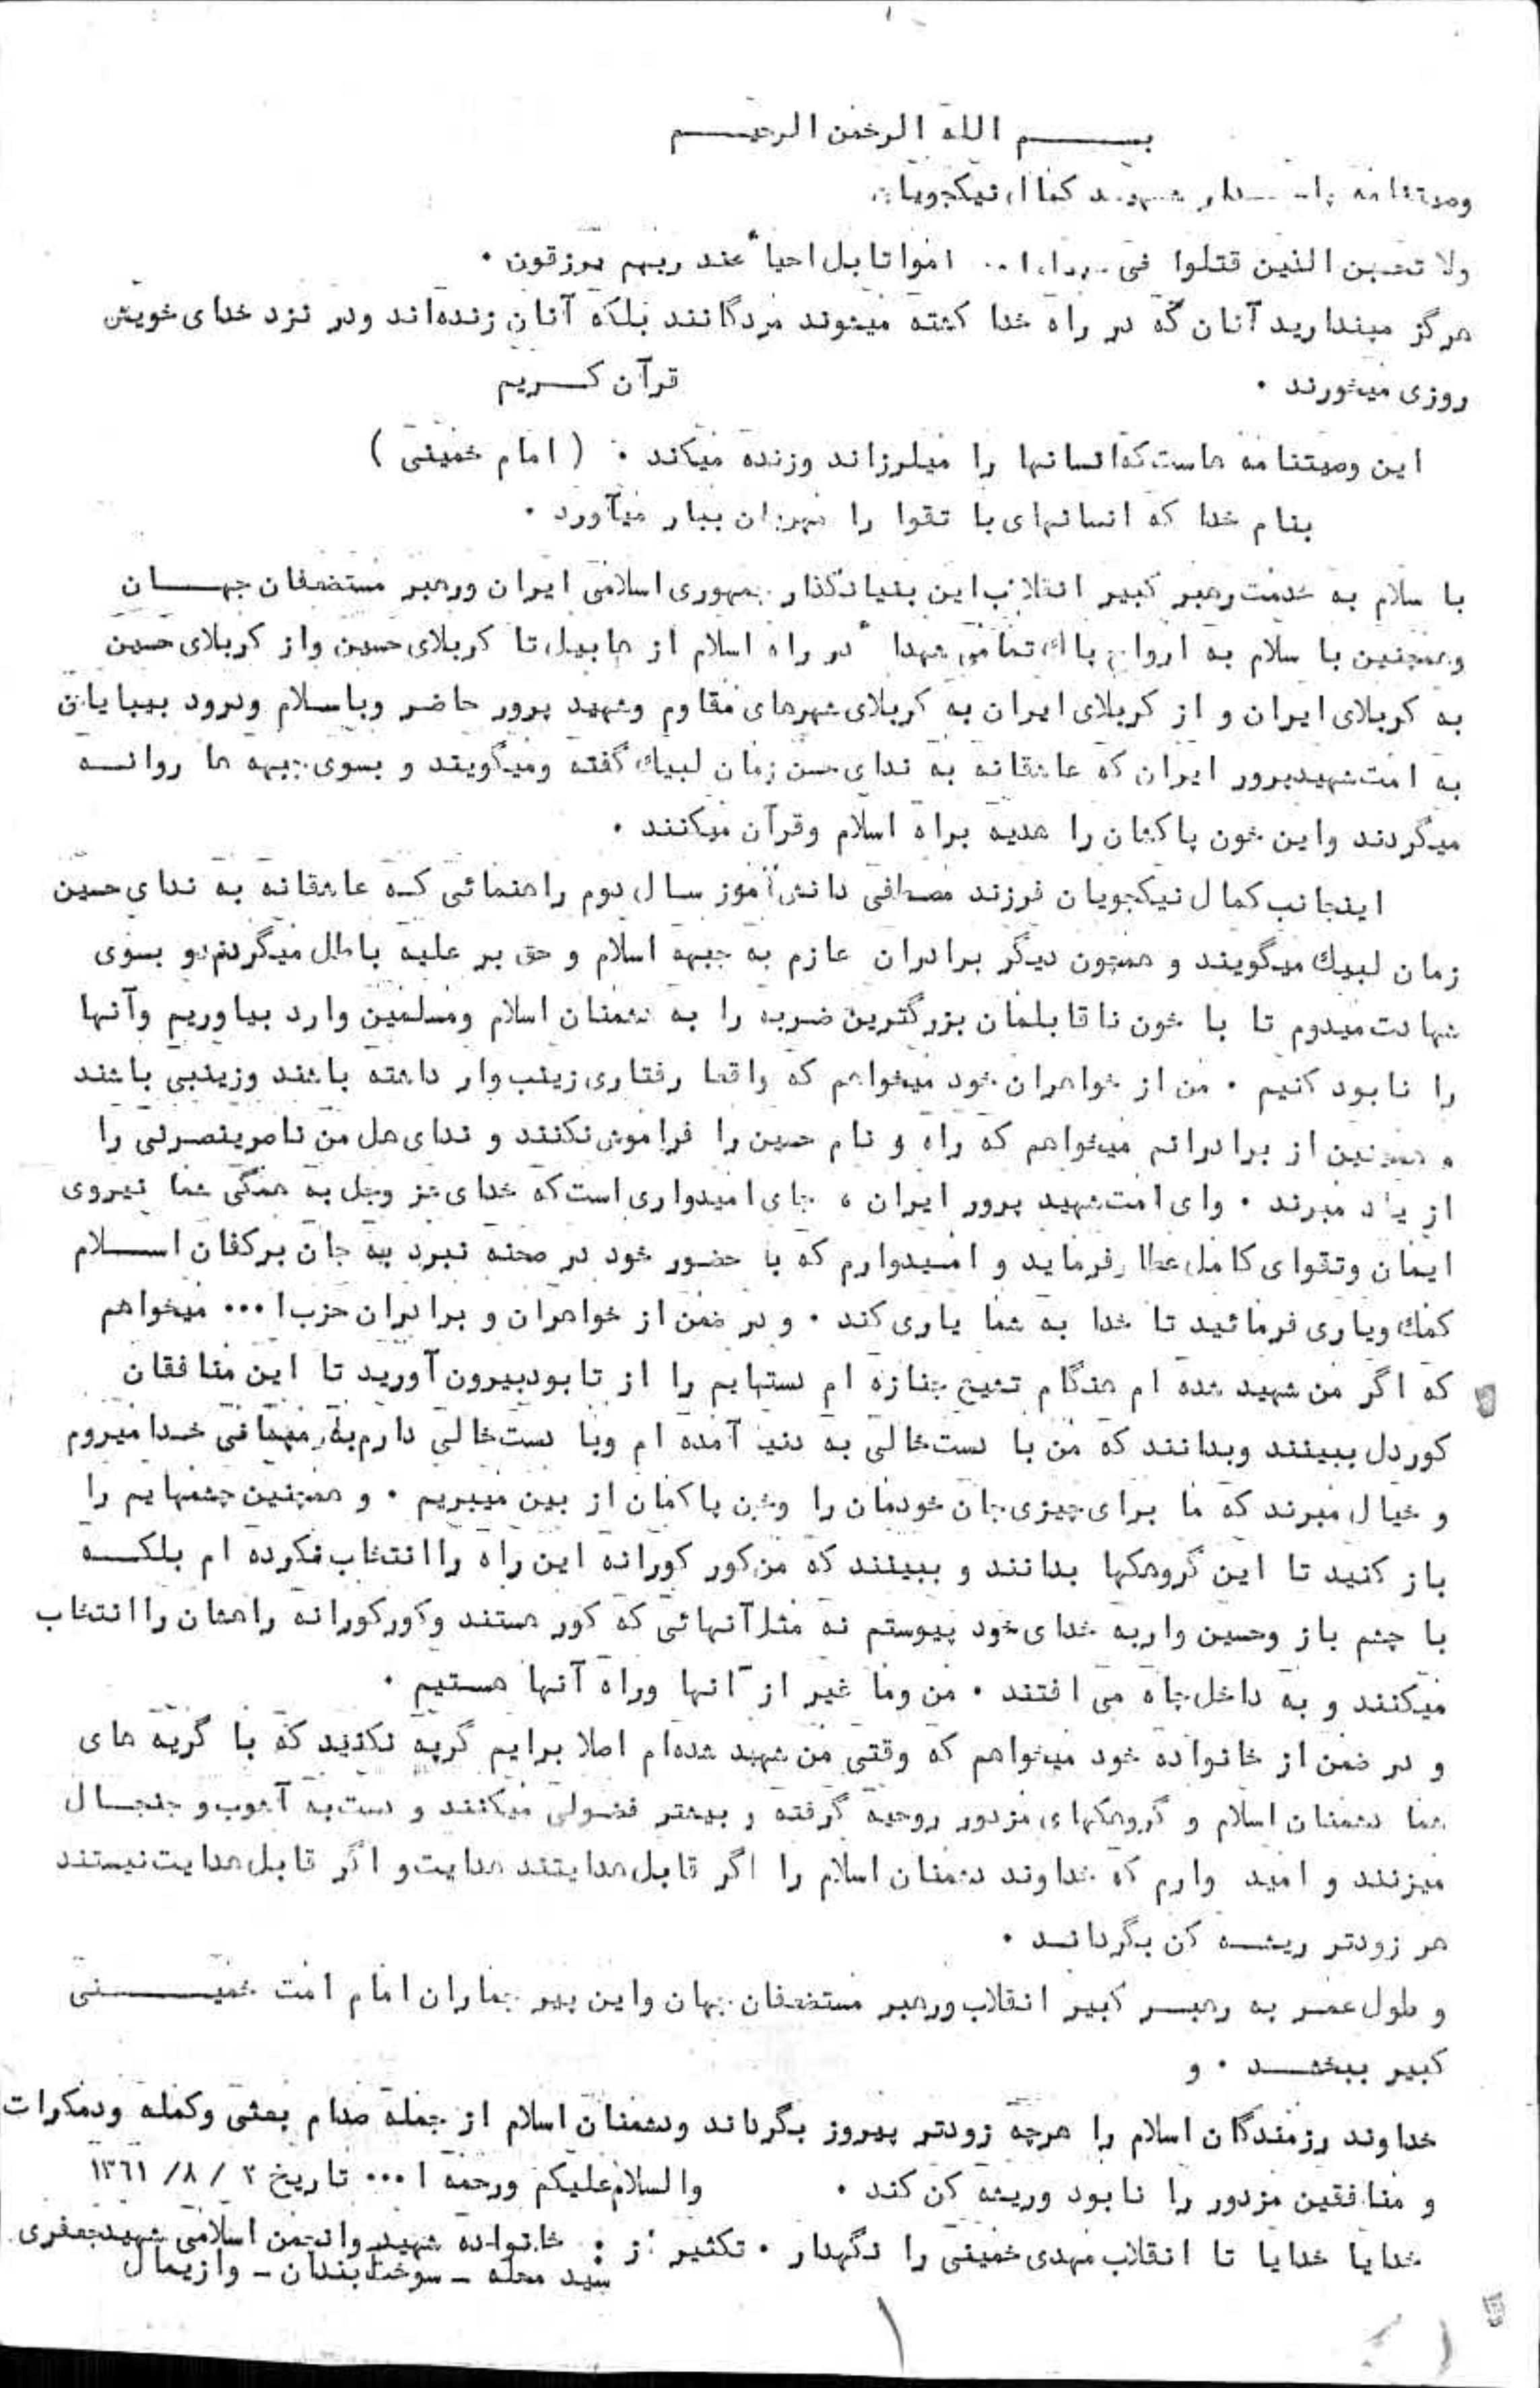 بسم الله الرحمن الرحیم
وصیتنامه پاسدار شهید کمال نیکجویان
ولا تحسبن الذین قتلوا فی امواتا بل احیاء عند ربهم یرزقون .
هرگز مپندارید آنان که در راه خدا کشته میشوند مردگانند بلکه آنان زنده‌اند ودر نزد خدای خویش
روزی میخورند . قرآن کریم
این وصیتنامه هاست که انسانها را میلرزاند وزنده میکند . ( امام خمینی )
بنام خدا که انسانهای با تقوا را ببار میآورد .
با سلام به خدمت رهبر کبیر انقلاب این بنیانگذار جمهوری اسلامی ایران ورهبر مستضعفان جهان
وهمچنین با سلام به ارواح پاك تمامی شهداء در راه اسلام از هابیل تا کربلای حسین واز کربلای حسین
به کربلای ایران و از کربلای ایران به کربلای شهرهای مقاوم وشهید پرور حاضر وباسلام ودرود بیپایان
به امت شهیدپرور ایران که عاشقانه به ندای حسین زمان لبیك گفته ومیگویند و بسوی جبهه ها روانه
میگردند واین خون پاکشان را هدیه براه اسلام وقرآن میکنند .
اینجانب کمال نیکجویان فرزند مصطفی دانش‌آموز سال دوم راهنمائی که عاشقانه به ندای حسین
زمان لبیك میگویند و همچون دیگر برادران عازم به جبهه اسلام و حق بر علیه باطل میگردم و بسوی
شهادت میدوم تا با خون ناقابلمان بزرگترین ضربه را به دشمنان اسلام ومسلمین وارد بیاوریم وآنها
را نابود کنیم . من از خواهران خود میخواهم که واقعا رفتاری زینب وار داشته باشند وزینبی باشند
و همچنین از برادرانم میخواهم که راه و نام حسین را فراموش نکنند و ندای هل من ناصر ینصرنی را
از یاد مبرند . وای امت شهید پرور ایران ، جای امیدواری است که خدای عز وجل به همگی شما نیروی
ایمان وتقوای کامل عطا فرماید و امیدوارم که با حضور خود در صحنه نبرد به جان برکفان اسلام
کمك ویاری فرمائید تا خدا به شما یاری کند . و در ضمن از خواهران و برادران حزب ا ... میخواهم
که اگر من شهید شده ام هنگام تشیع جنازه ام دستهایم را از تابود بیرون آورید تا این منافقان
کوردل ببینند وبدانند که من با دست خالی به دنیا آمده ام وبا دست خالی دارم به مهمانی خدا میروم
و خیال مبرند که ما برای چیزی جان خودمان را وخون پاکمان از بین میبریم . و همچنین چشمهایم را
باز کنید تا این گروهکها بدانند و ببینند که من کور کورانه این راه را انتخاب نکرده ام بلکه
با چشم باز وحسین وار به خدای خود پیوستم نه مثل آنهائی که کور هستند وکورکورانه راهشان را انتخاب
میکنند و به داخل چاه می افتند . من وما غیر از آنها وراه آنها هستیم .
و در ضمن از خانواده خود میخواهم که وقتی من شهید شده‌ام اصلا برایم گریه نکنید که با گریه های
شما دشمنان اسلام و گروهکهای مزدور روحیه گرفته و بیشتر فضولی میکنند و دست به آشوب و جنجال
میزنند و امید وارم که خداوند دشمنان اسلام را اگر قابل هدایتند هدایت و اگر قابل هدایت نیستند
هر زودتر ریشه کن بگرداند .
و طول عمر به رهبر کبیر انقلاب ورهبر مستضعفان جهان واین پیر جماران امام امت خمینی
کبیر ببخشد . و
خداوند رزمندگان اسلام را هرچه زودتر پیروز بگرداند ودشمنان اسلام از جمله صدام بعثی وکمله ودمکرات
و منافقین مزدور را نابود وریشه کن کند . والسلام علیکم ورحمه ا ... تاریخ ۳ / ۸/ ۱۳٦۱
خدایا خدایا تا انقلاب مهدی خمینی را نگهدار . تکثیر از : خانواده شهید وانجمن اسلامی شهیدجعفری
سید محله - سوخته‌بندان - وازیمال
۱